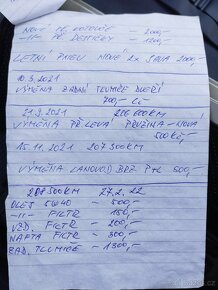 NOVÉ PŘ. KOTOUČE - 2000,-
-"- DESTIČKY - 1200,-
LETNÍ PNEU NOVÉ 2x SAVA 2000,-
10.3.2021
VÝMĚNA ZADNÍ TLUMIČE DVEŘÍ
700,- Kč
21.9.2021 206 600KM
VÝMĚNA PŘ. LEVÁ PRUŽINA - NOVÁ
500Kč,-
15.11.2021 207 300KM
VÝMĚNA LANOVOD BRZ 500,-
208 500KM 27.2.22
OLEJ 5W40 - 500,-
-"- FILTR - 150,-
VZD. FILTR - 200,-
NAFTA FILTR - 300,-
ZAD. TLUMIČE - 1300,-